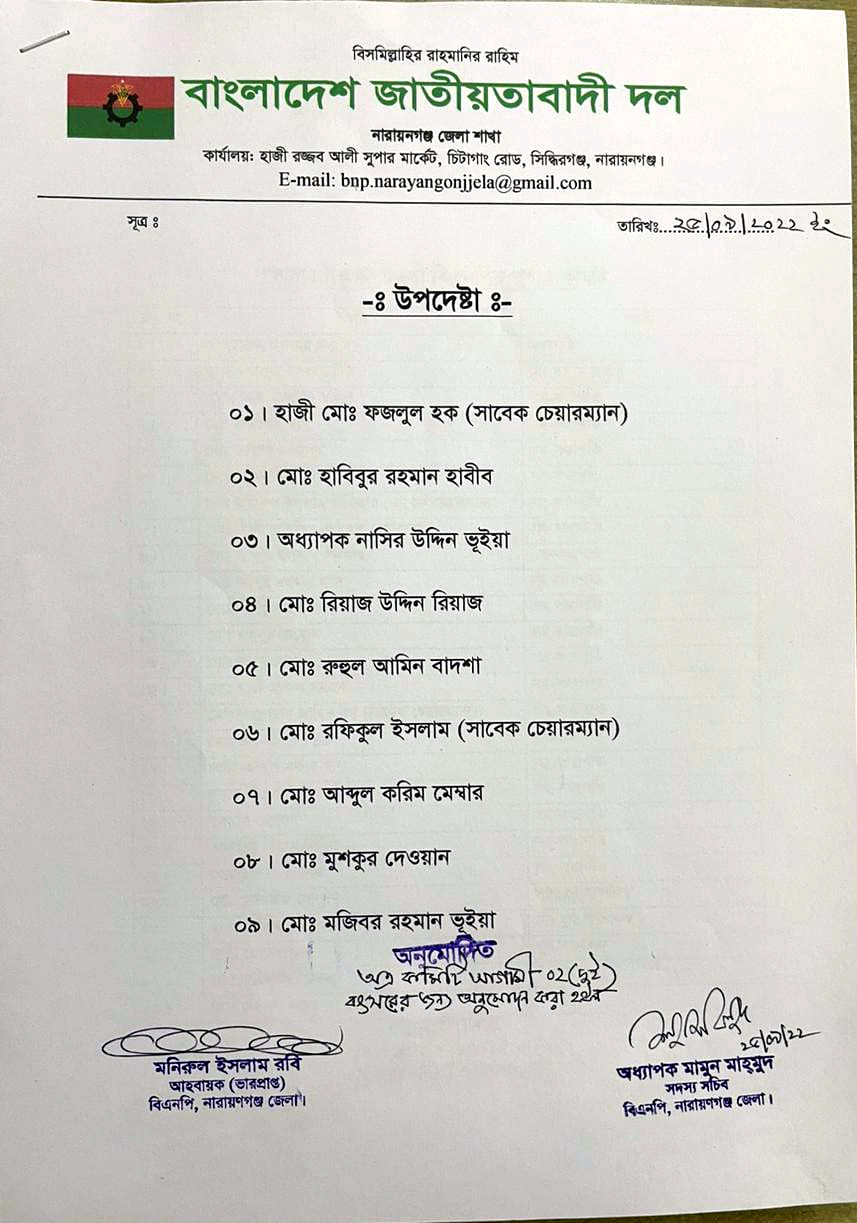 বিসমিল্লাহির রাহমানির রাহিম
বাংলাদেশ জাতীয়তাবাদী দল
নারায়নগঞ্জ জেলা শাখা
কার্যালয়: হাজী রজ্জব আলী সুপার মার্কেট, চিটাগাং রোড, সিদ্ধিরগঞ্জ, নারায়নগঞ্জ।
E-mail: bnp.narayangonjjela@gmail.com
সূত্র ঃ
তারিখঃ...২৫/০৯/২০২২ ইং
-ঃ উপদেষ্টা ঃ-
০১। হাজী মোঃ ফজলুল হক (সাবেক চেয়ারম্যান)
০২। মোঃ হাবিবুর রহমান হাবীব
০৩। অধ্যাপক নাসির উদ্দিন ভূইয়া
০৪। মোঃ রিয়াজ উদ্দিন রিয়াজ
০৫। মোঃ রুহুল আমিন বাদশা
০৬। মোঃ রফিকুল ইসলাম (সাবেক চেয়ারম্যান)
০৭। মোঃ আব্দুল করিম মেম্বার
০৮। মোঃ মুশকুর দেওয়ান
০৯। মোঃ মজিবর রহমান ভূইয়া
অনুমোদিত
অত্র কমিটি আগামী ০২(দুই)
বৎসরের জন্য অনুমোদন করা হইল
২৫/০৯/২২
মনিরুল ইসলাম রবি
আহবায়ক (ভারপ্রাপ্ত)
বিএনপি, নারায়ণগঞ্জ জেলা।
অধ্যাপক মামুন মাহ্‌মুদ
সদস্য সচিব
বিএনপি, নারায়ণগঞ্জ জেলা।